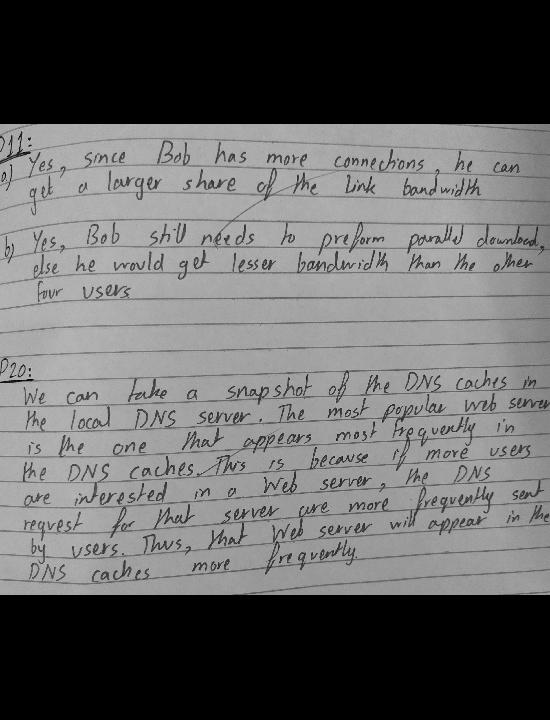 P11:
a) Yes, since Bob has more connections, he can
get a larger share of the link bandwidth
b) Yes, Bob still needs to preform parallel download,
else he would get lesser bandwidth than the other
four users
P20:
We can take a snapshot of the DNS caches in
the local DNS server. The most popular Web server
is the one that appears most frequently in
the DNS caches. This is because if more users
are interested in a Web server, the DNS
request for that server are more frequently sent
by users. Thus, that Web server will appear in the
DNS caches more frequently.